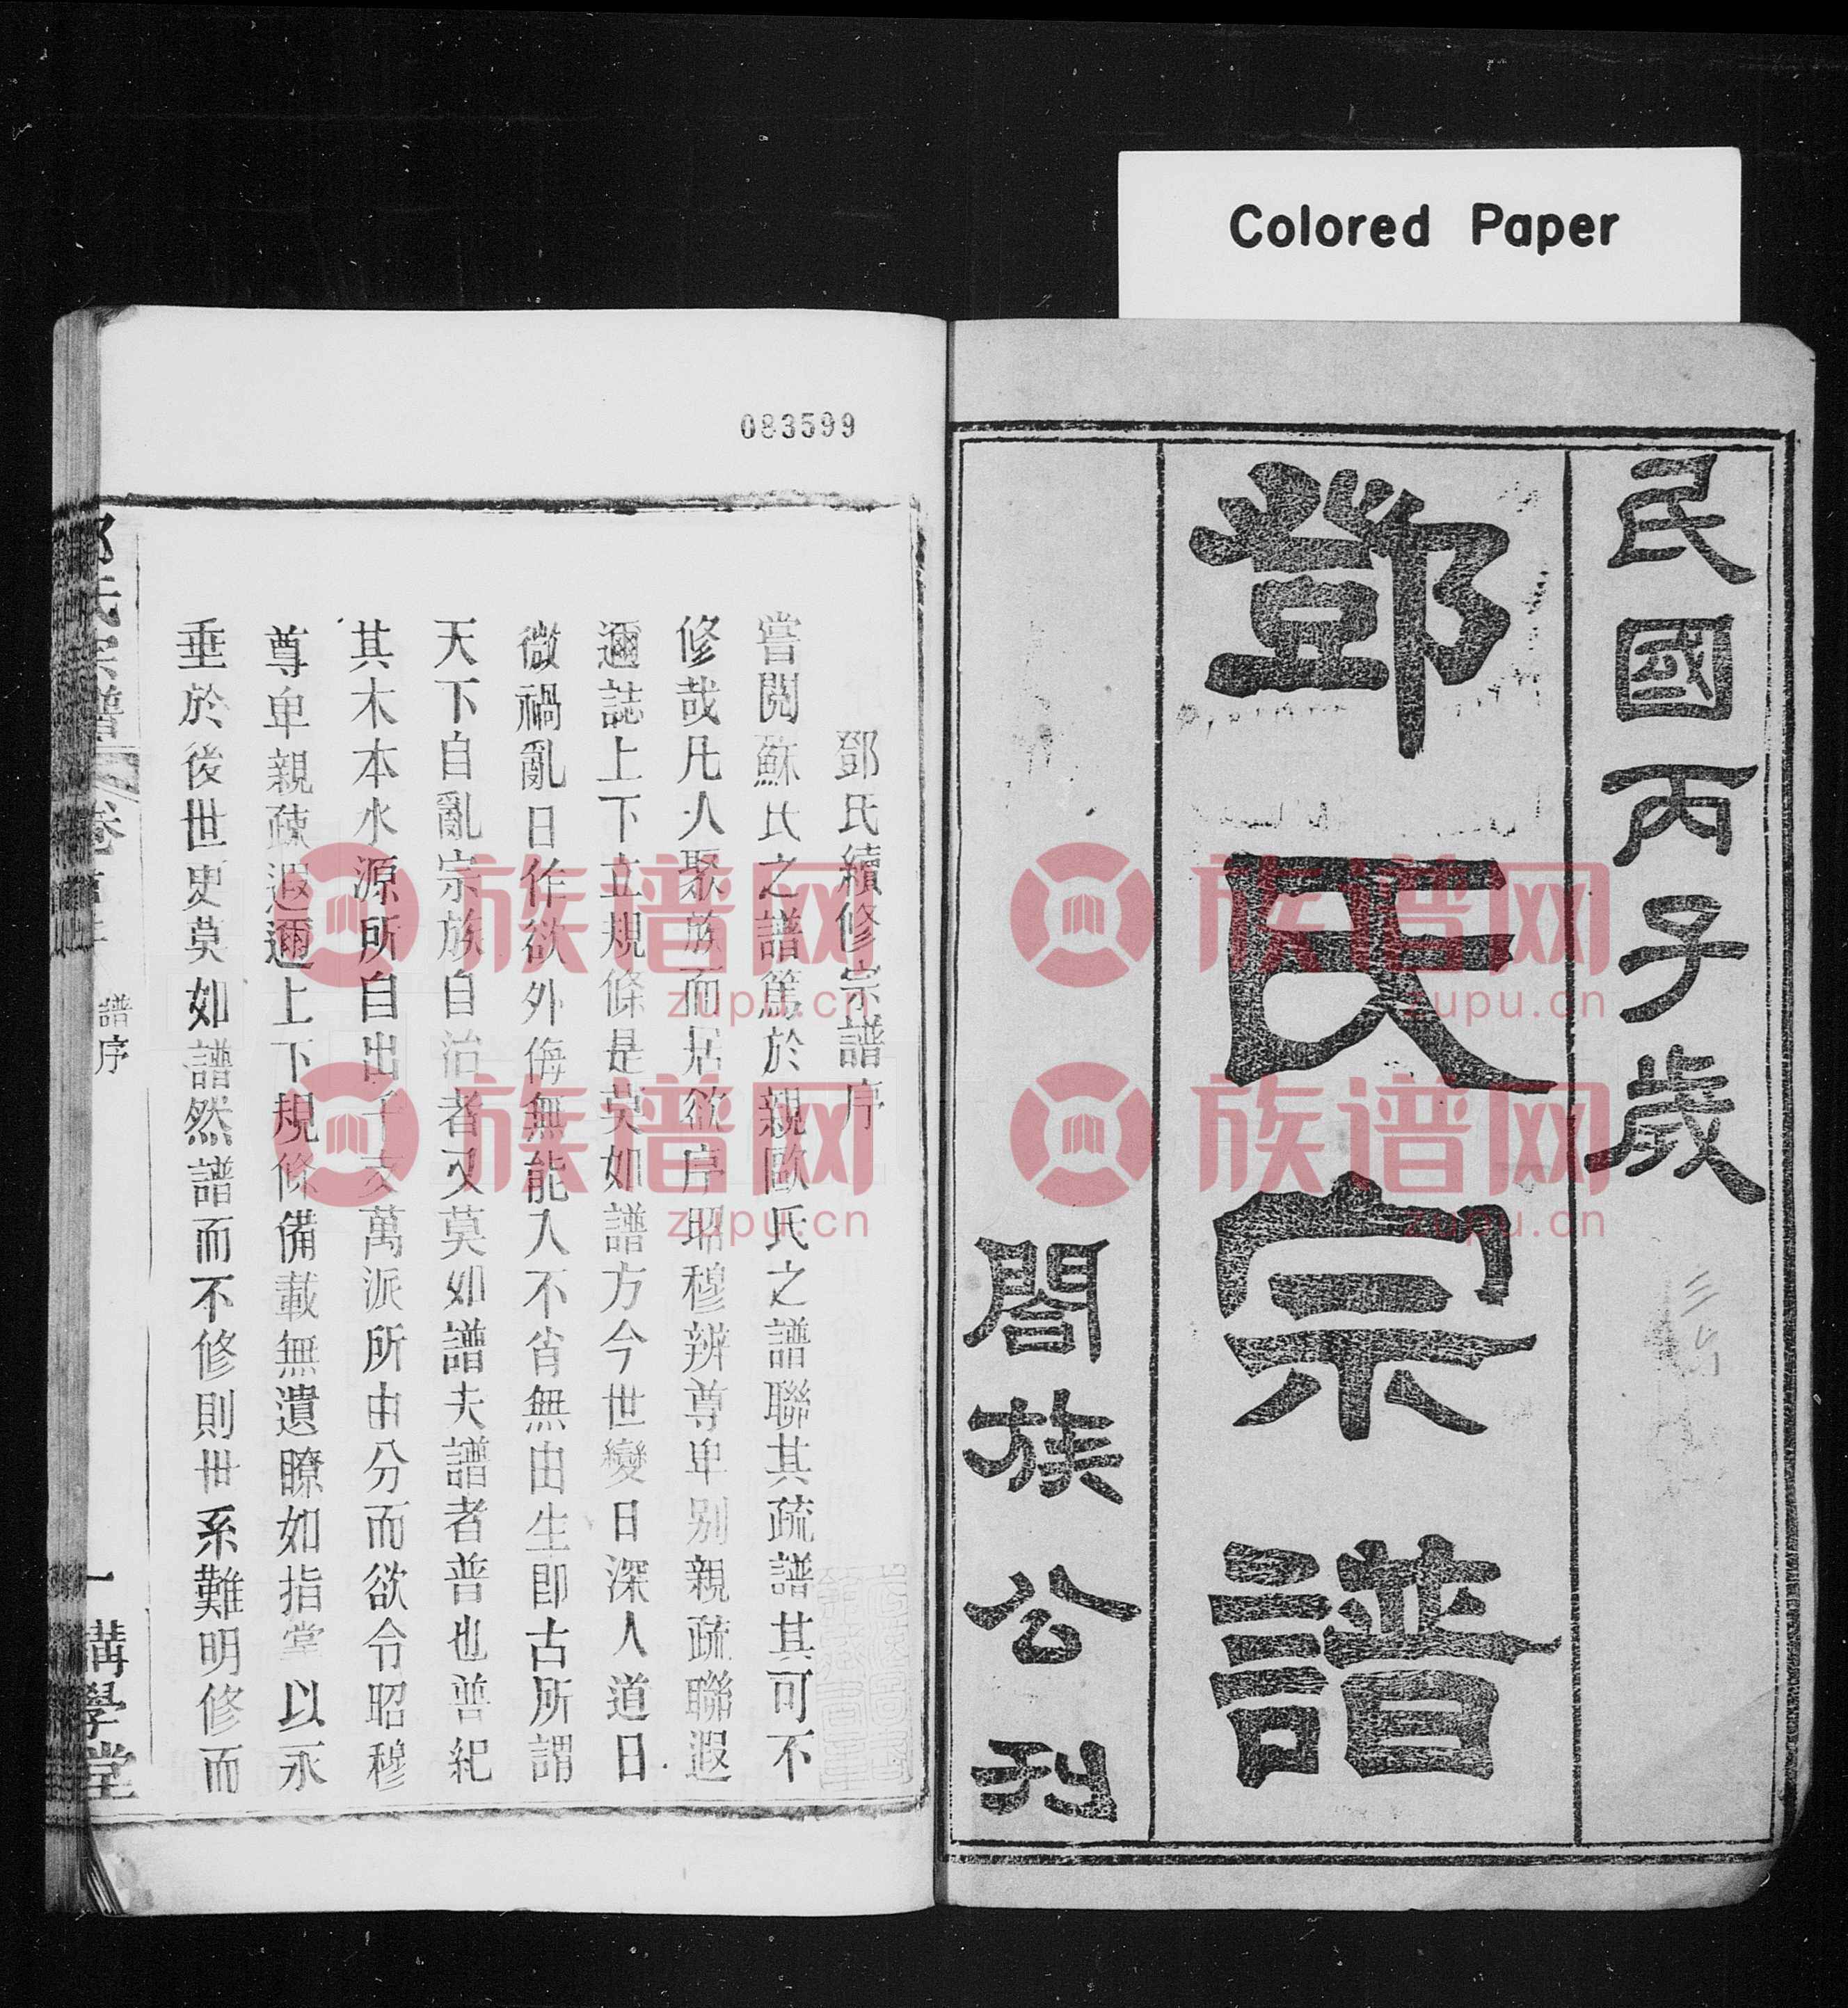 Colored Paper
民國丙子歲
鄧氏宗譜
閤族公刊
083599
鄧氏續修宗譜序
嘗閱蘇氏之譜篤於親歐氏之譜聯其疏譜其可不
修哉凡人聚族而居欲序昭穆辨尊卑别親疏聯遐
邇誌上下立規條是莫如譜方今世變日深人道日
微禍亂日作欲外侮無能入不肖無由生卽古所謂
天下自亂宗族自治者又莫如譜夫譜者普也普紀
其木本水源所自出千支萬派所由分而欲令昭穆
尊卑親疎遐邇上下規條備載無遺瞭如指掌以永
垂於後世更莫如譜然譜而不修則世系難明修而
氏宗譜
卷首
譜序
一
講學堂
族谱网
zupu.cn
族谱网
zupu.cn
族谱网
zupu.cn
族谱网
zupu.cn